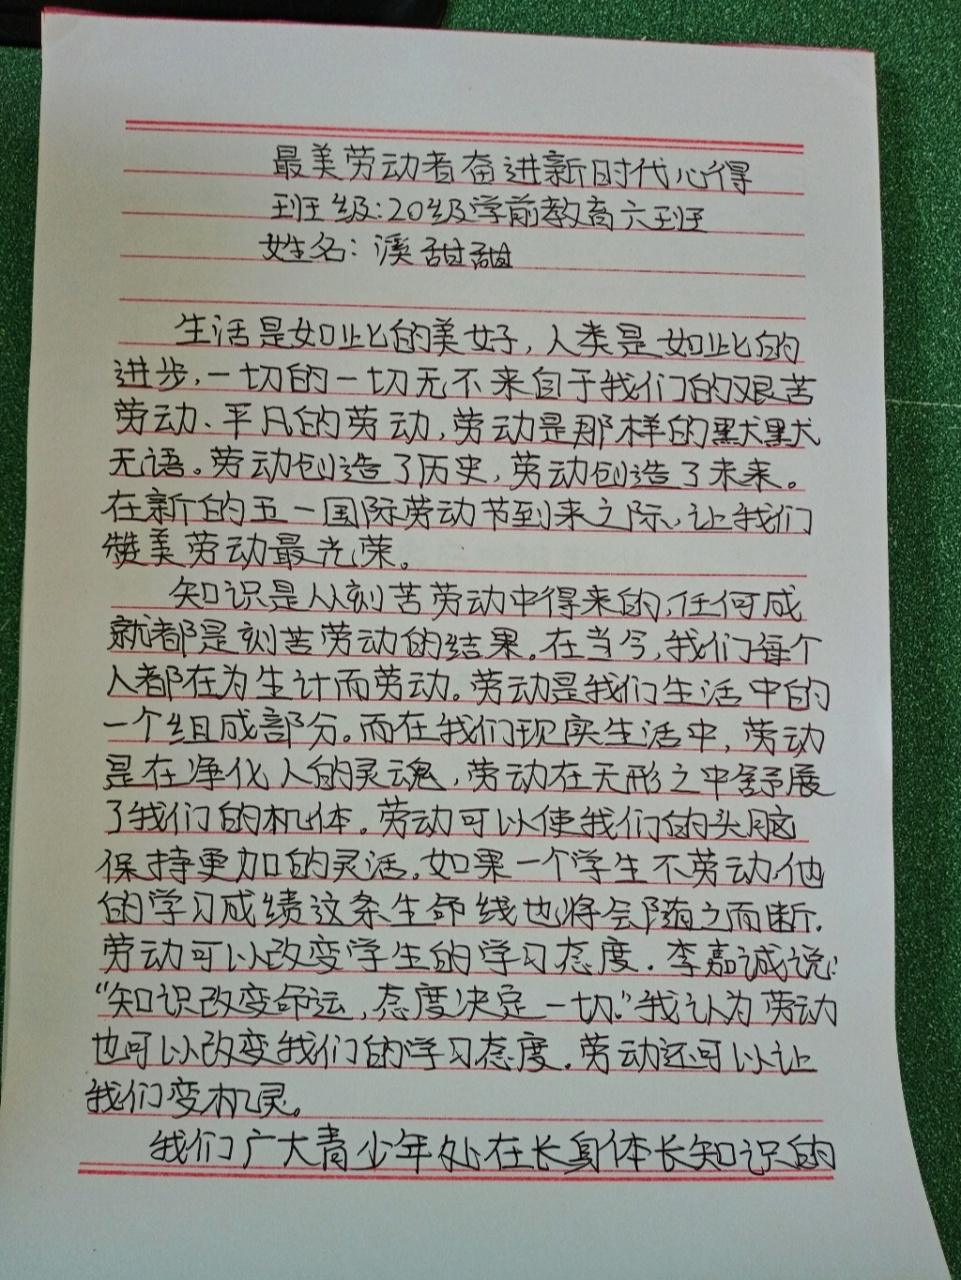 最美劳动者奋进新时代心得
班级:20级学前教育六班
姓名:溪甜甜
生活是如此的美好,人类是如此的
进步,一切的一切无不来自于我们的艰苦
劳动、平凡的劳动,劳动是那样的默默
无语。劳动创造了历史,劳动创造了未来。
在新的五一国际劳动节到来之际,让我们
赞美劳动最光荣。
知识是从刻苦劳动中得来的,任何成
就都是刻苦劳动的结果。在当今,我们每个
人都在为生计而劳动。劳动是我们生活中的
一个组成部分。而在我们现实生活中,劳动
是在净化人的灵魂,劳动在无形之中舒展
了我们的机体。劳动可以使我们的头脑
保持更加的灵活。如果一个学生不劳动,他
的学习成绩这条生命线也将会随之而断.
劳动可以改变学生的学习态度.李嘉诚说:
“知识改变命运,态度决定一切.”我认为劳动
也可以改变我们的学习态度.劳动还可以让
我们变机灵。
我们广大青少年处在长身体长知识的